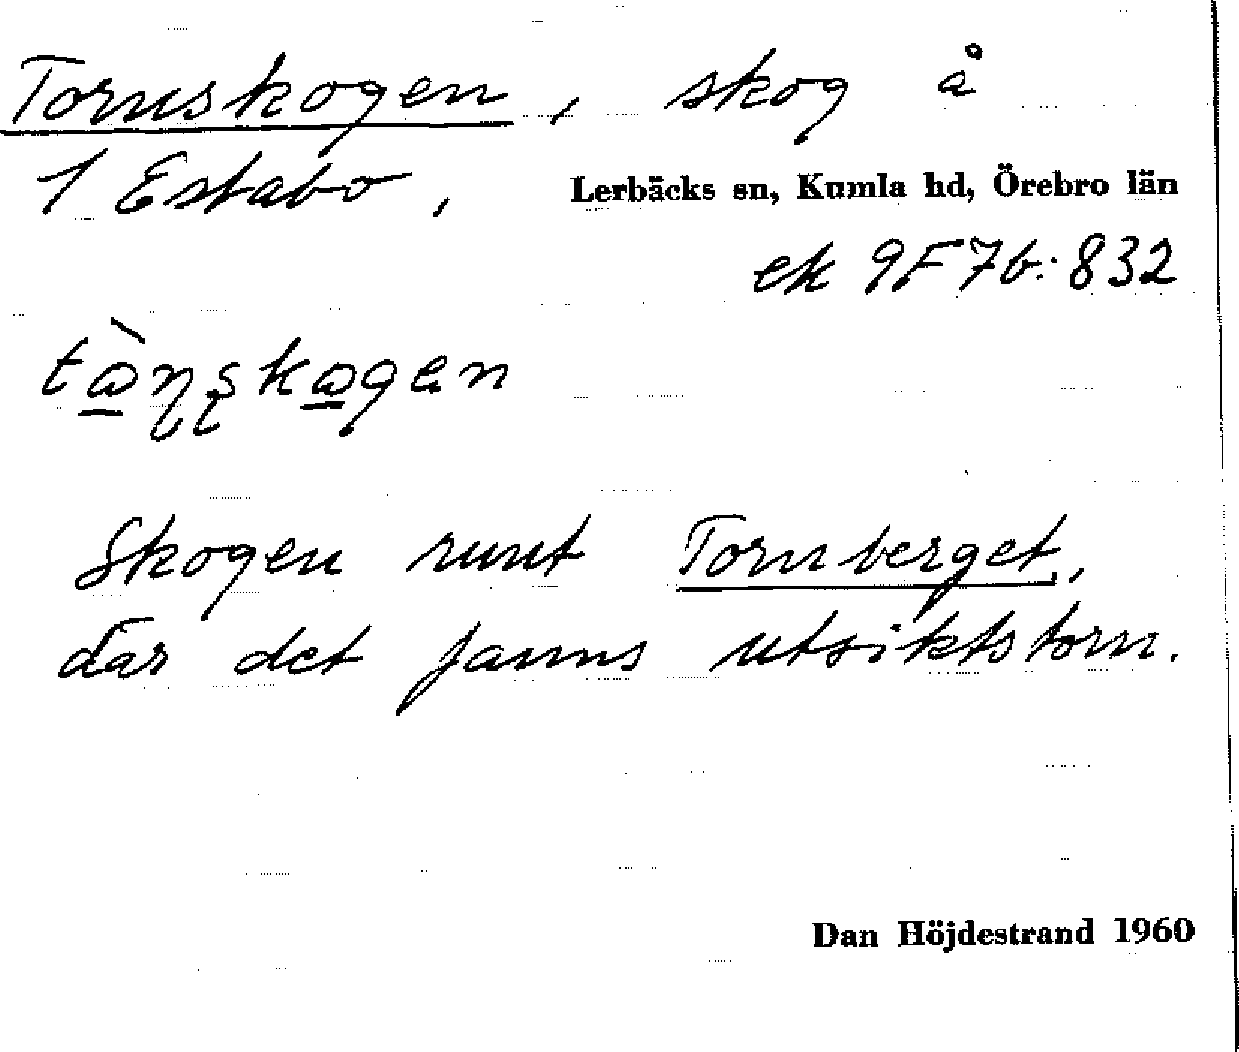 Tornskogen, skog å
1 Estabo, Lerbäcks sn, Kumla hd, Örebro län
ek 9F7b:832
tàn̡s̡kagen
Skogen runt Tornberget,
där det fanns utsiktstorn.
Dan Höjdestrand 1960